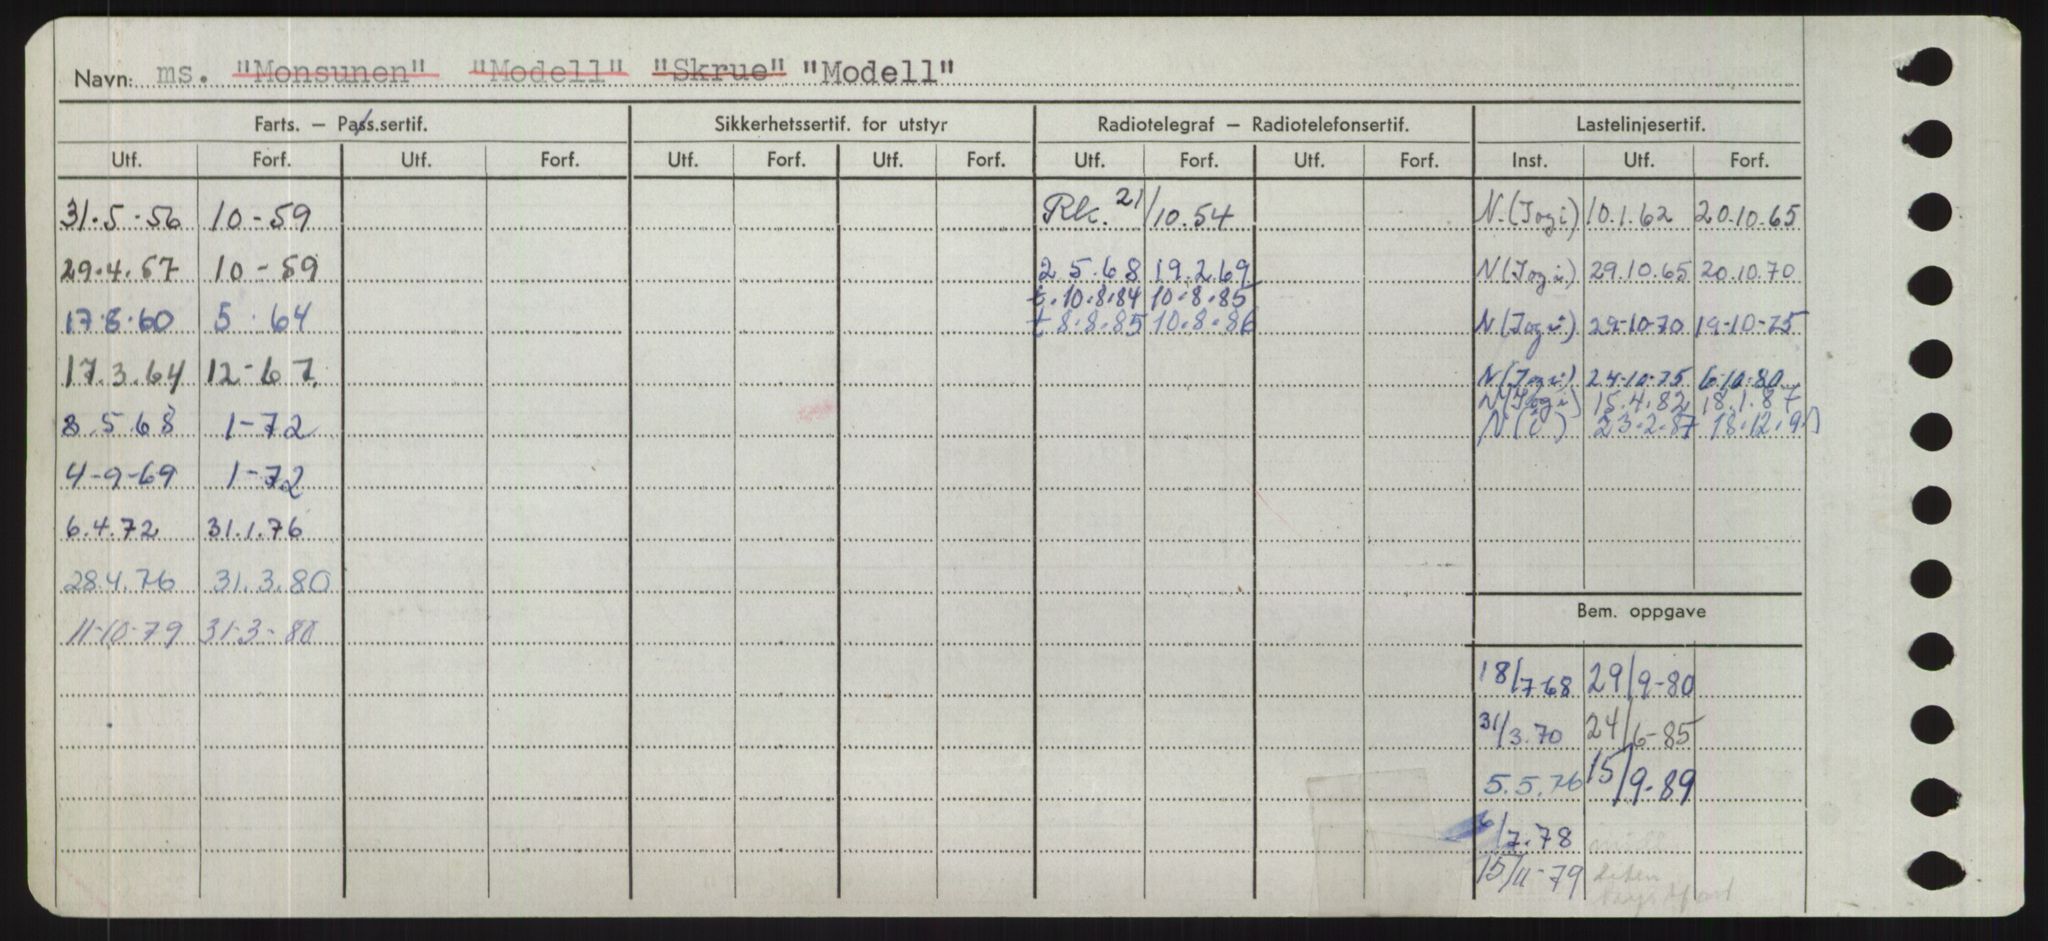 Navn: ms. "Monsunen" "Modell" "Skrue" "Modell"
Farts. – Pass.sertif. Sikkerhetssertif. for utstyr Radiotelegraf – Radiotelefonsertif. Lastelinjesertif.
Utf. Forf. Utf. Forf. Utf. Forf. Utf. Forf. Utf. Forf. Utf. Forf. Inst. Utf. Forf.
31.5.56 10-59 Rk. 21/10.54 N.(Jogi) 10.1.62 20.10.65
29.4.57 10-59 2.5.68 19.2.69 N(Jogi) 29.10.65 20.10.70
t.10.8.84 10.8.85
17.8.60 5.64 t 8.8.85 10.8.86 N(Jogi) 29-10-70 19-10-75
17.3.64 12-67. N(Jogi) 24-10-75 6.10.80
N(Jogi) 15.4.82 18.1.87
8.5.68 1-72 N(i) 23.2.87
4-9-69 1-72
6.4.72 31.1.76
28.4.76 31.3.80
Bem. oppgave
11-10-79 31-3-80
18/7 68 29/9-80
31/3.70 24/6-85
5.5.76 15/9-89
6/7.78
15/11-79 liten